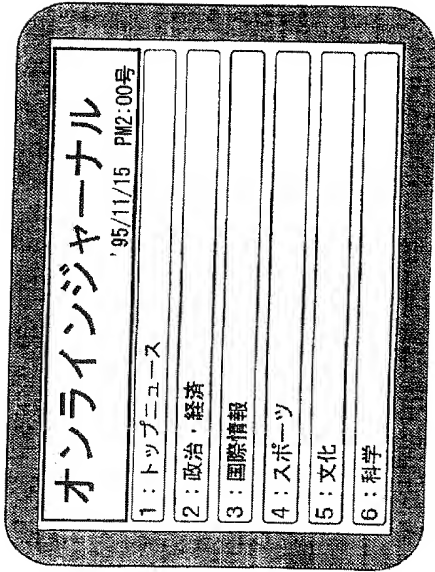 オンラインジャーナル
'95/11/15 PM2:00号
1:トップニュース
2:政治・経済
3:国際情報
4:スポーツ
5:文化
6:科学